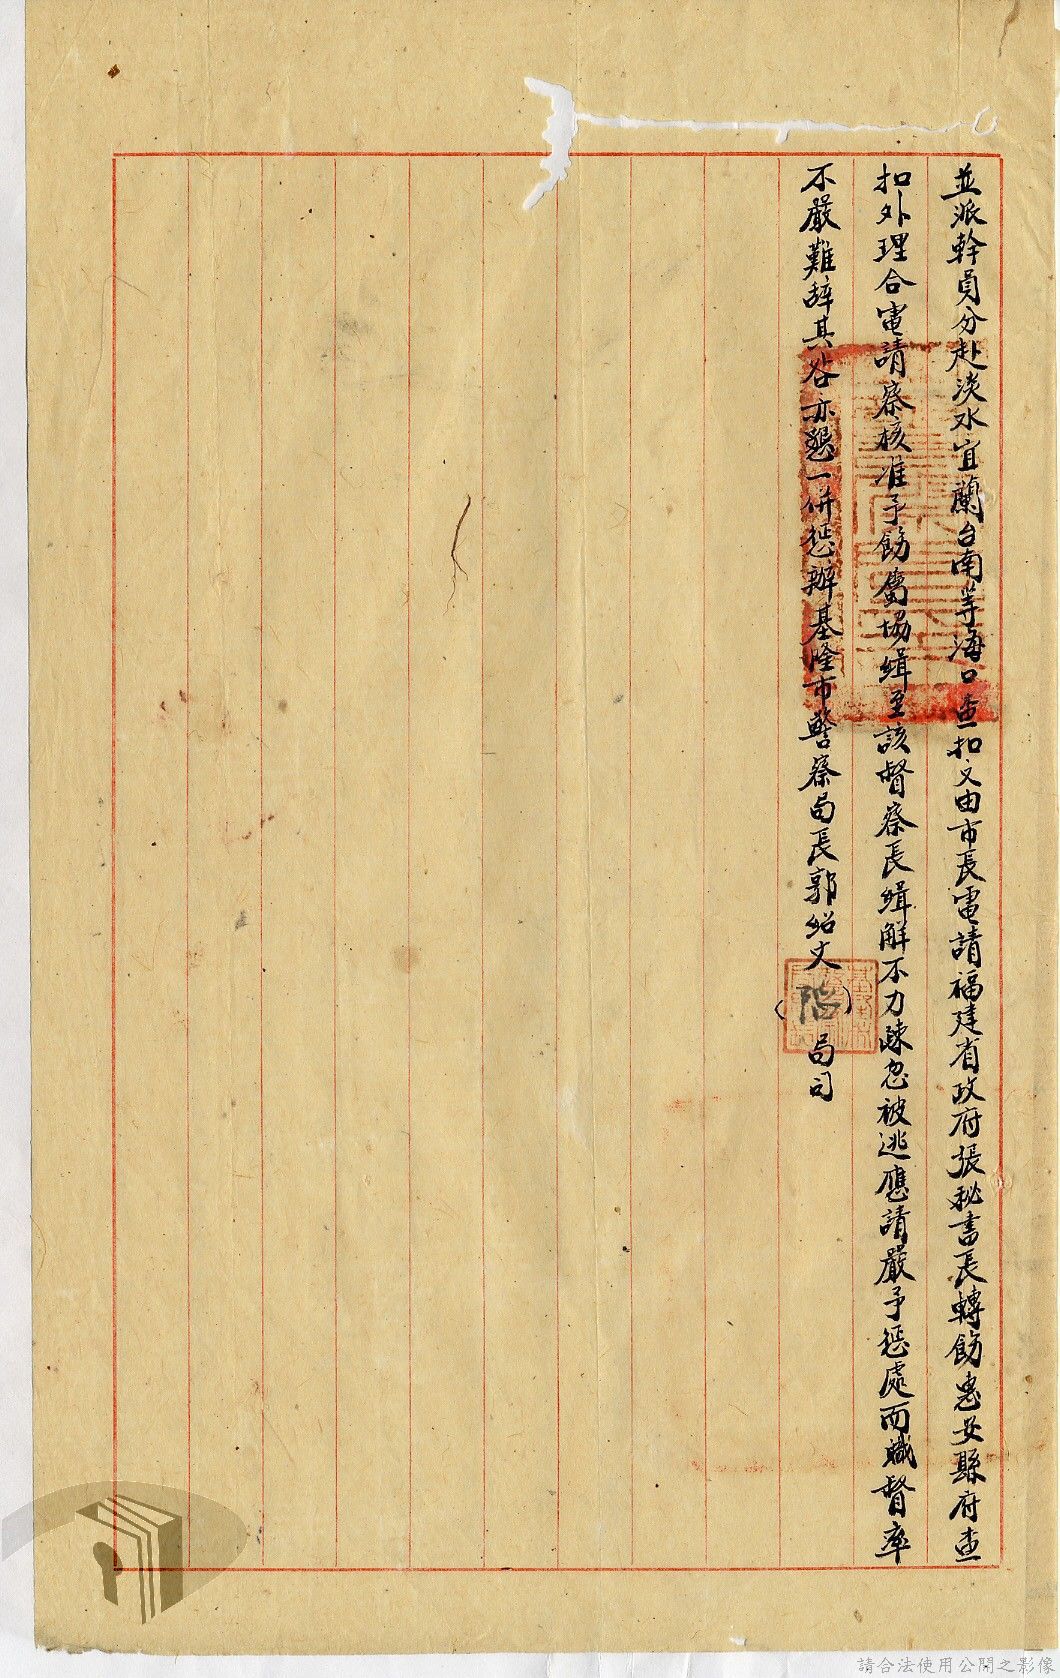 並派幹員分赴淡水宜蘭台南等海口查扣又由市長電請福建省政府張秘書長轉飭惠安縣府查
扣外理合電請察核准予飭屬協緝至該督察長緝解不力疎忽被逃應請嚴予懲處而職督率
不嚴難辞其咎亦懇一併懲辦基隆市警察局長郭紹文( )局司
請合法使用公開之影像